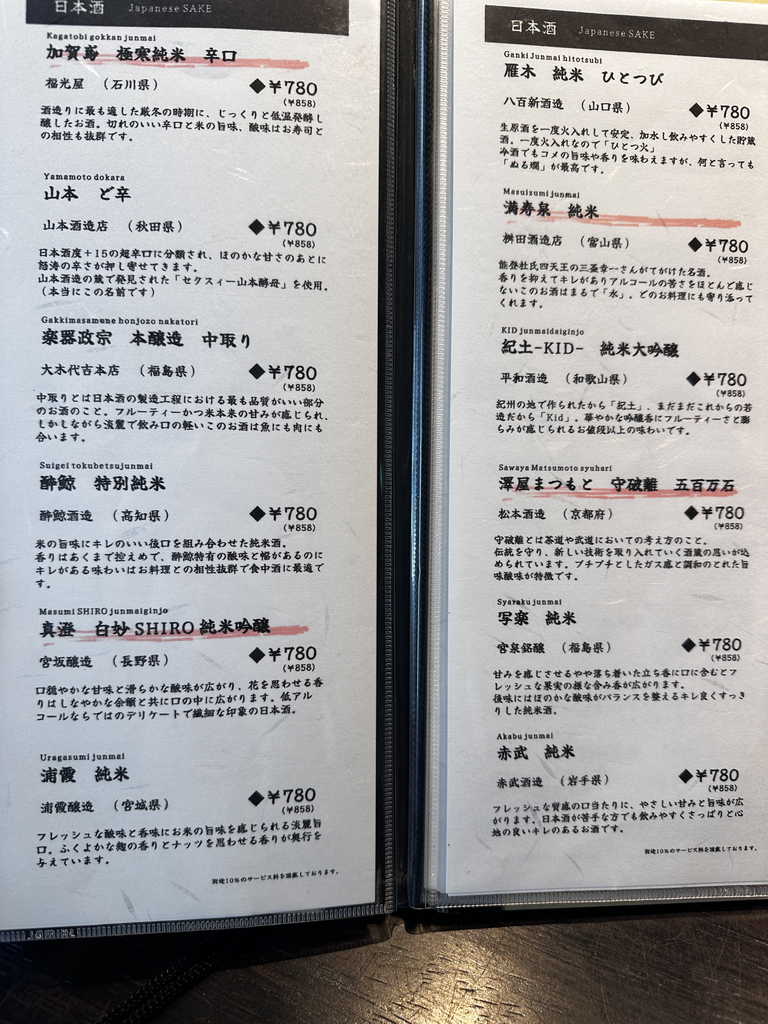 日本酒 Japanese SAKE
Kagatobi gokkan junmai
加賀鳶 極寒純米 辛口
福光屋 （石川県） ◆¥780
(¥858)
酒造りに最も適した厳冬の時期に、じっくりと低温発酵し
醸したお酒。切れのいい辛口と米の旨味、酸味はお寿司と
の相性も抜群です。
Yamamoto dokara
山本 ど辛
山本酒造店 （秋田県） ◆¥780
(¥858)
日本酒度＋15の超辛口に分類され、ほのかな甘さのあとに
怒涛の辛さが押し寄せてきます。
山本酒造の蔵で発見された「セクスィー山本酵母」を使用。
（本当にこの名前です）
Gakkimasamune honjozo nakatori
楽器政宗 本醸造 中取り
大木代吉本店 （福島県） ◆¥780
(¥858)
中取りとは日本酒の製造工程における最も品質がいい部分
のお酒のこと。フルーティーかつ米本来の甘みが感じられ、
しかしながら淡麗で飲み口の軽いこのお酒は魚にも肉にも
合います。
Suigei tokubetsujunmai
酔鯨 特別純米
酔鯨酒造 （高知県） ◆¥780
(¥858)
米の旨味にキレのいい後口を組み合わせた純米酒。
香りはあくまで控えめで、酔鯨特有の酸味と幅があるのに
キレがある味わいはお料理との相性抜群で食中酒に最適で
す。
Masumi SHIRO junmaiginjo
真澄 白妙 SHIRO 純米吟醸
宮坂醸造 （長野県） ◆¥780
(¥858)
口穏やかな甘味と滑らかな酸味が広がり、花を思わせる香
りはしなやかな余韻と共に口の中に広がります。低アル
コールならではのデリケートで繊細な印象の日本酒。
Uragasumi junmai
浦霞 純米
浦霞醸造 （宮城県） ◆¥780
(¥858)
フレッシュな酸味と香味にお米の旨味を感じられる淡麗旨
口。ふくよかな麹の香りとナッツを思わせる香りが奥行を
与えています。
別途10％のサービス料を頂戴しております。
日本酒 Japanese SAKE
Ganki Junmai hitotsubi
雁木 純米 ひとつび
八百新酒造 （山口県） ◆¥780
(¥858)
生原酒を一度火入れして安定、加水し飲みやすくした貯蔵
酒。一度火入れなので「ひとつ火」
冷酒でもコメの旨味や香りを味わえますが、何と言っても
「ぬる燗」が最高です。
Masuizumi junmai
満寿泉 純米
桝田酒造店 （富山県） ◆¥780
(¥858)
能登杜氏四天王の三盃幸一さんがてがけた名酒。
香りを抑えてキレがありアルコールの苦さをほとんど感じ
ないこのお酒はまるで「水」。どのお料理にも寄り添って
くれます。
KID junmaidaiginjo
紀土-KID- 純米大吟醸
平和酒造 （和歌山県） ◆¥780
(¥858)
紀州の地で作られたから「紀土」、まだまだこれからの若
造だから「Kid」。華やかな吟醸香にフルーティーさと膨
らみが感じられるお値段以上の味わいです。
Sawaya Matsumoto syuhari
澤屋まつもと 守破離 五百万石
松本酒造 （京都府） ◆¥780
(¥858)
守破離とは茶道や武道においての考え方のこと。
伝統を守り、新しい技術を取り入れていく酒蔵の思いが込
められています。プチプチとしたガス感と調和のとれた旨
味酸味が特徴です。
Syaraku junmai
写楽 純米
宮泉銘醸 （福島県） ◆¥780
(¥858)
甘みを感じさせるやや落ち着いた立ち香に口に含むとフ
レッシュな果実の様な含み香が広がります。
後味にはほのかな酸味がバランスを整えるキレ良くすっき
りした純米酒。
Akabu junmai
赤武 純米
赤武酒造 （岩手県） ◆¥780
(¥858)
フレッシュな質感の口当たりに、やさしい甘みと旨味が広
がります。日本酒が苦手な方でも飲みやすくさっぱりと心
地の良いキレのあるお酒です。
別途10％のサービス料を頂戴しております。